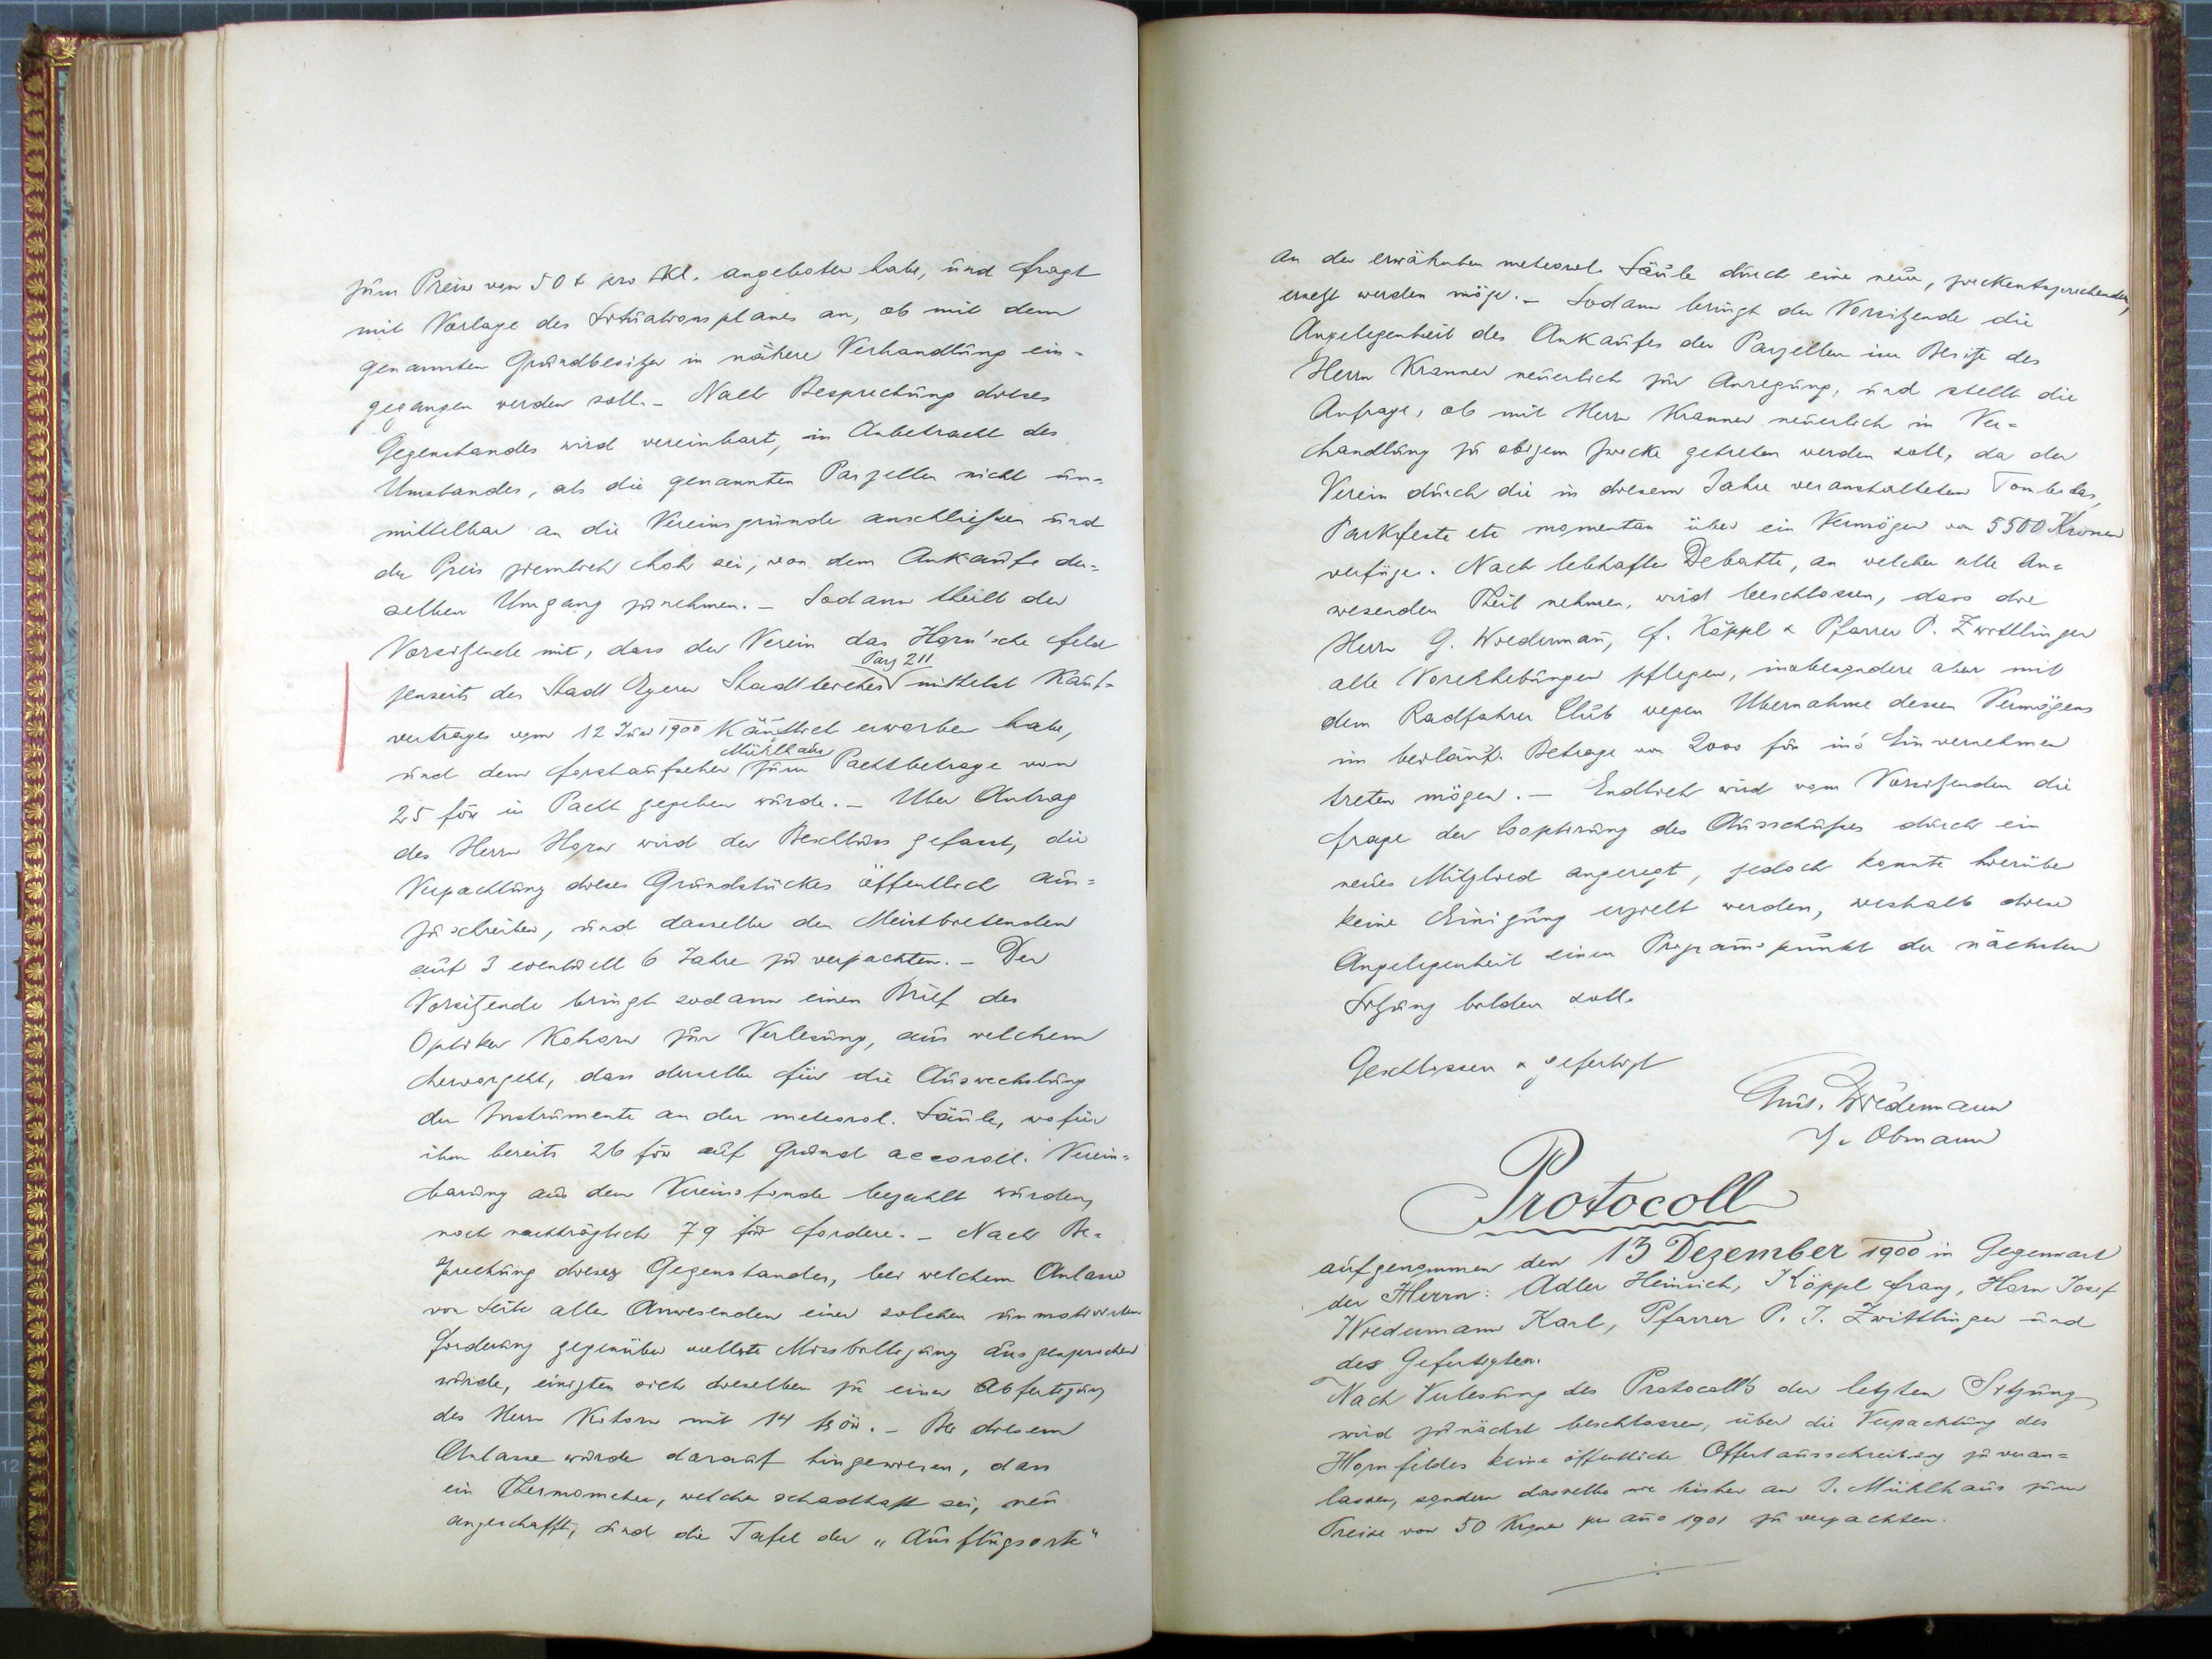 zum Preise von 50 x pro □Kl. angeboten habe, und fragt
mit Vorlage des Situationsplanes an, ob mit dem
genannten Grundbesitzer in nähere Verhandlung ein-
gegangen werden soll. – Nach Besprechung dieses
Gegenstandes wird vereinbart, in Anbetracht des
Umstandes, als die genannten Parzellen nicht un-
mittelbar an die Vereinsgründe anschließen und
der Preis ziemlich hoh sei, von dem Ankaufe der-
selben Umgang zu nehmen. – Sodann theilt der
Vorsitzende mit, dass der Verein das Horn'sche Feld
Parz 211
jenseits des Stadt Egerer Stadtteiches mittelst Kauf-
vertrages vom 12 Juni 1900 käuflich erworben habe,
Mühlhaus
und dem Forstaufseher zum Pachtbetrage von
25 föw in Pacht gegeben wurde. – Über Antrag
des Herrn Horn wird der Beschluss gefasst, die
Verpachtung dieses Grundstückes öffentlich aus-
zuschreiben, und dasselbe den Meistbietenden
auf 3 eventuell 6 Jahre zu verpachten. – Der
Vorsitzende bringt sodann einen Brief des
Optiker Kohorn zur Verlesung, aus welchem
hervorgeht, dass derselbe für die Auswechslung
der Instrumente an der meteorol. Säule, wofür
ihm bereits 26 föw auf Grund accordl. Verein-
barung aus dem Vereinsfonde bezahlt wurden,
noch nachträglich 79 föw fordere. – Nach Be-
sprechung dieses Gegenstandes, bei welchem Anlasse
von Seite aller Anwesenden einer solchen unmotivirten
Forderung gegenüber vollste Missbilligung ausgesprochen
wurde, einigten sich dieselben zu einer Abfertigung
des Herrn Kohorn mit 14 föw. – Bei diesem
Anlasse wurde darauf hingewiesen, dass
ein Thermometer, welcher schadhaft sei, neu
angeschafft, und die Tafel der „Ausflugsorte"
an der erwähnten meteorol. Säule durch eine neue, zweckentsprechendere,
ersetzt werden möge. – Sodann bringt der Vorsitzende die
Angelegenheit des Ankaufes der Parzellen im Besitze des
Herrn Kranner neuerlich zur Anregung, und stellt die
Anfrage, ob mit Herrn Kranner neuerlich in Ver-
handlung zu obigem Zwecke getreten werden soll, da der
Verein durch die in diesem Jahre veranstalteten Tombolas,
Parkfeste etc momentan über ein Vermögen von 5500 Kronen
verfüge. Nach lebhafter Debatte, an welcher alle An-
wesenden Theil nehmen, wird beschlossen, dass die
Herrn G. Wiedermañ, F. Köppl & Pfarrer P. Zwittlinger
alle Vorerhebungen pflegen, insbesondere aber mit
dem Radfahrer Club wegen Übernahme dessen Vermögens
im beiläuf. Betrage von 2000 föw in's Einvernehmen
treten mögen. – Endlich wird vom Vorsitzenden die
Frage der Cooptirung des Ausschußes durch ein
neues Mitglied angeregt, jedoch konnte hierüber
keine Einigung erzielt werden, weshalb diese
Angelegenheit einen Programspunkt der nächsten
Sitzung bilden soll.
Geschlossen & gefertigt
Gust. Wiedermann
Obmann
Protocoll
aufgenommen den 13 Dezember 1900 in Gegenwart
der Herrn: Adler Heinrich, Köppl Franz, Horn Josef
Wiedermann Karl, Pfarrer P. J. Zwittlinger und
des Gefertigten.
Nach Verlesung des Protocoll's der letzten Sitzung
wird zunächst beschlossen, über die Verpachtung des
Hornfeldes keine öffentliche Offertausschreibung zu veran-
lassen, sondern dasselbe wie bisher an J. Mühlhaus zum
Preise von 50 Kronen per año 1901 zu verpachten.